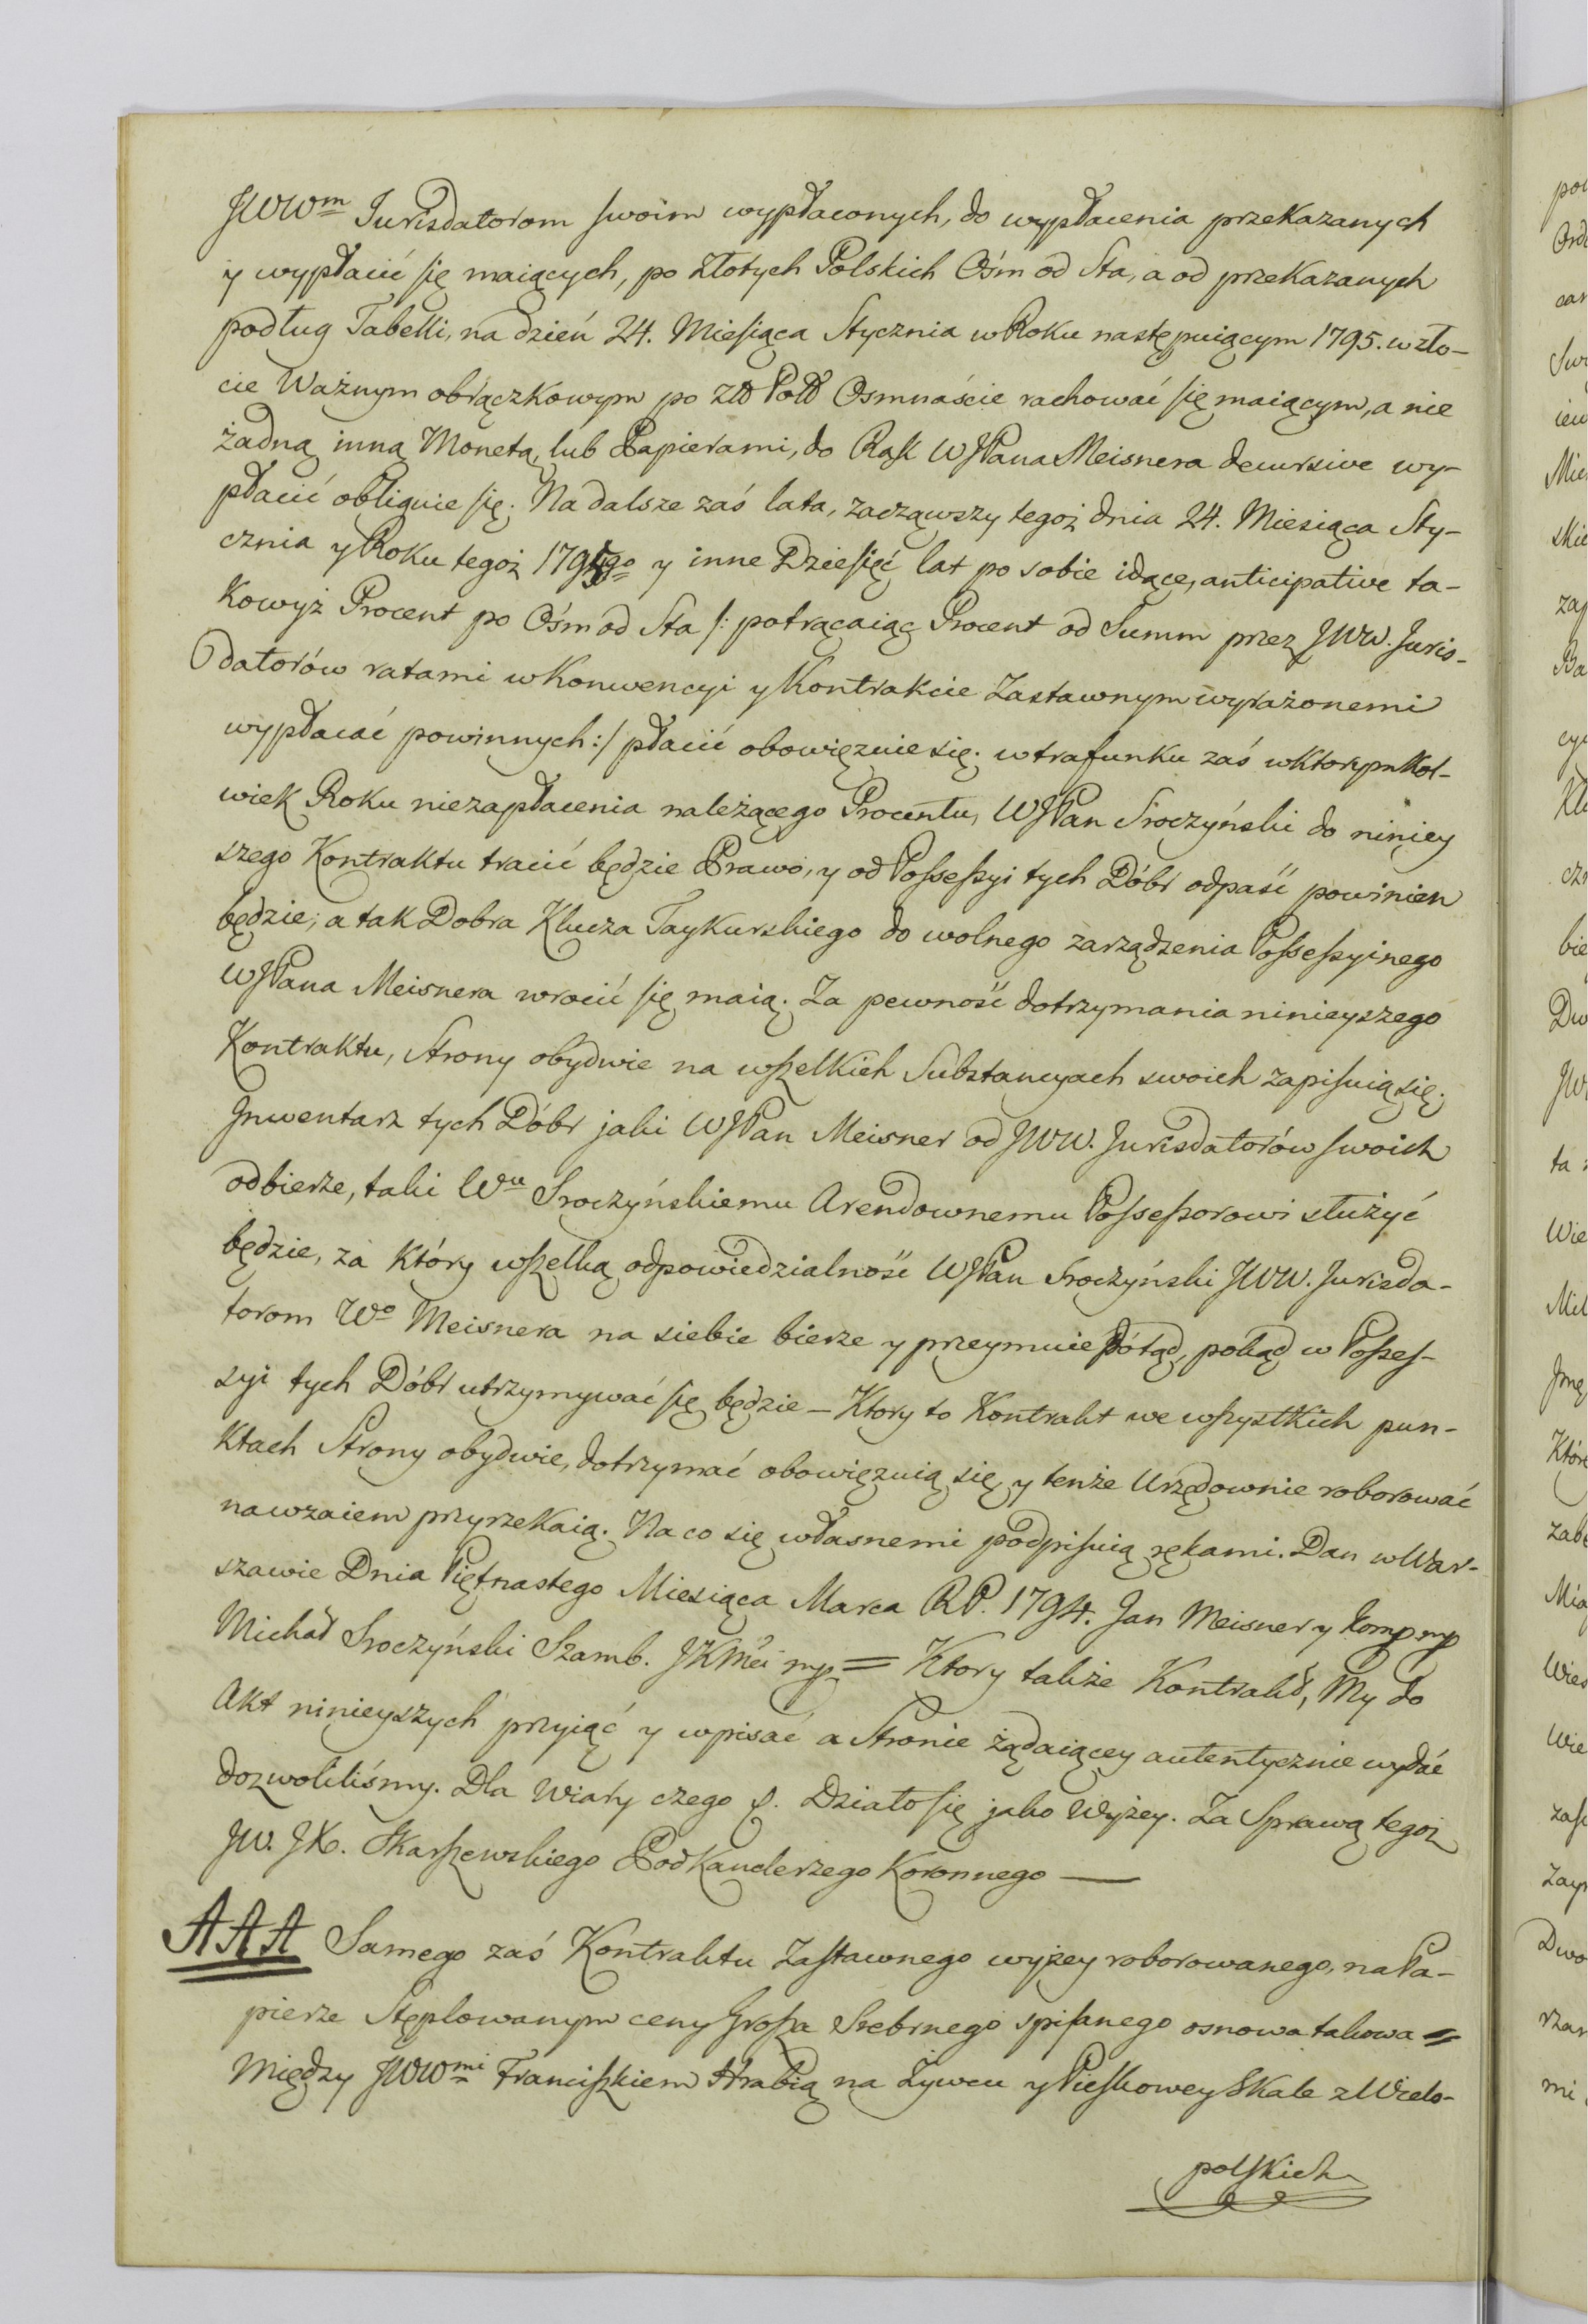 JWW<sup>m</sup> Jurisdatorom swoim wypłaconych, do wypłacenia przekazanych
y wypłacić się maiących, po Złotych Polskich Ośm od Sta, a od przekazanych
podług Tabelli, na dzień 24. Miesiąca Stycznia w Roku następuiącym 1795. w zło-
cie Ważnym obrączkowym po Złł Poll Osmnaście rachować się maiącym, a nie
żadną inną Monetą, lub Papierami, do Rąk WJPana Meisnera decursive wy-
płacić obliguie się. Na dalsze zaś lata, zacząwszy tegoż dnia 24. Miesiąca Sty-
cznia y Roku tegoż 1795<sup>go</sup> y inne Dziesięć lat po sobie idące, anticipative ta-
kowyż Procent po Ośm od Sta /: potrącaiąc Procent od Summ przez JWW. Juris-
datorów ratami w Konwencyi y Kontrakcie Zastawnym wyrażonemi
wypłacać powinnych :/ płacić obowięzuie się. w trafunku zaś w ktorymkol-
wiek Roku niezapłacenia należącego Procentu, WJPan Sroczyński do niniey
szego Kontraktu tracić będzie Prawo, y od Possessyi tych Dóbr odpaść powinien
będzie; a tak Dobra Klucza Taykurskiego do wolnego zarządzenia Possessyinego
WJPana Meisnera wrocić się maią. Za pewność dotrzymania ninieyszego
Kontraktu, Strony obydwie na wszelkich Substancyach swoich zapisuią się.
Jnwentarz tych Dóbr jaki WJPan Meisner od JWW. Jurisdatorów swoich
odbierze, taki W<sup>u</sup> Sroczyńskiemu Arendownemu Possessorowi służyć
będzie, za który wszelką odpowiedzialność WJPan Sroczyński JWW. Jurisda-
torom W<sup>o</sup> Meisnera na siebie bierze y przeymuie Pótąd, pokąd w Posses-
syi tych Dóbr utrzymywać się będzie — Ktory to Kontrakt we wszystkich pun-
ktach Strony obydwie, dotrzymać obowięzuią się y tenże Urzędownie roborować
nawzaiem przyrzekaią. Na co się własnemi podpisuią rękami. Dan w War-
szawie Dnia Piętnastego Miesiąca Marca RP. 1794. Jan Meisner y komp mp
Michał Sroczyński Szamb. JKMći mp = Ktory także Kontrakt, My do
Akt ninieyszych przyiąć y wpisać a Stronie żądaiącey autentycznie wydać
dozwoliliśmy. Dla Wiary czego &. Działo się jako Wyżey. Za Sprawą tegoż
JW. JX. Skarszewskiego Podkanclerzego Koronnego —
AAA Samego zaś Kontraktu Zastawnego wyżey roborowanego, na Pa-
pierze Stęplowanym ceny Grosza Srebrnego spisanego osnowa takowa =
Między JWW<sup>mi</sup> Franciszkiem Hrabią na Żywcu y Pieskowey Skale z Wielo-
polskich